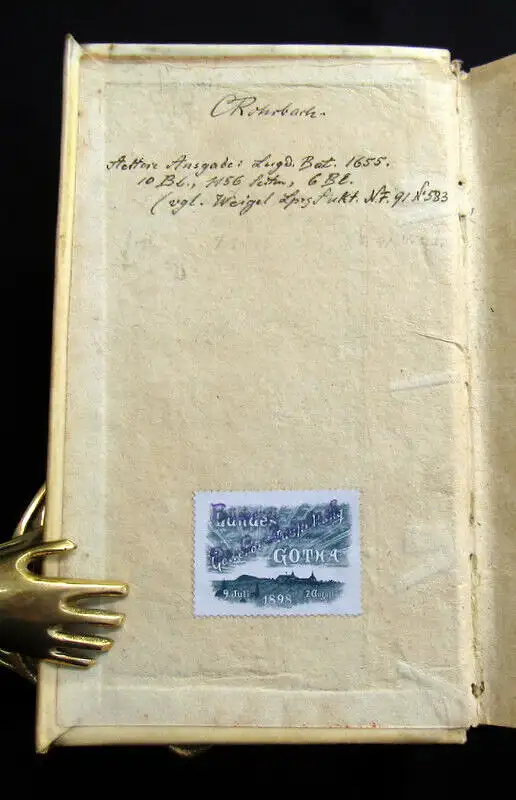 CRohrbach.
Aeltere Ausgabe: Lugd. Bat. 1655.
10 Bl., 1156 Seiten, 6 Bl.
(vgl. Weigel Lpzg Aukt. N.F. 91 No 583
GOTHA
9. Juli 1898